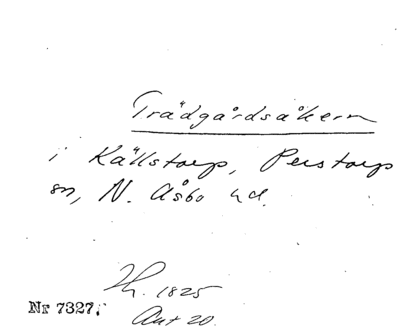 Trädgårdsåkern
i Källstorp, Perstorp
sn, N. Åsbo hd.
Lh. 1825
Akt 20.
Nr 7327.